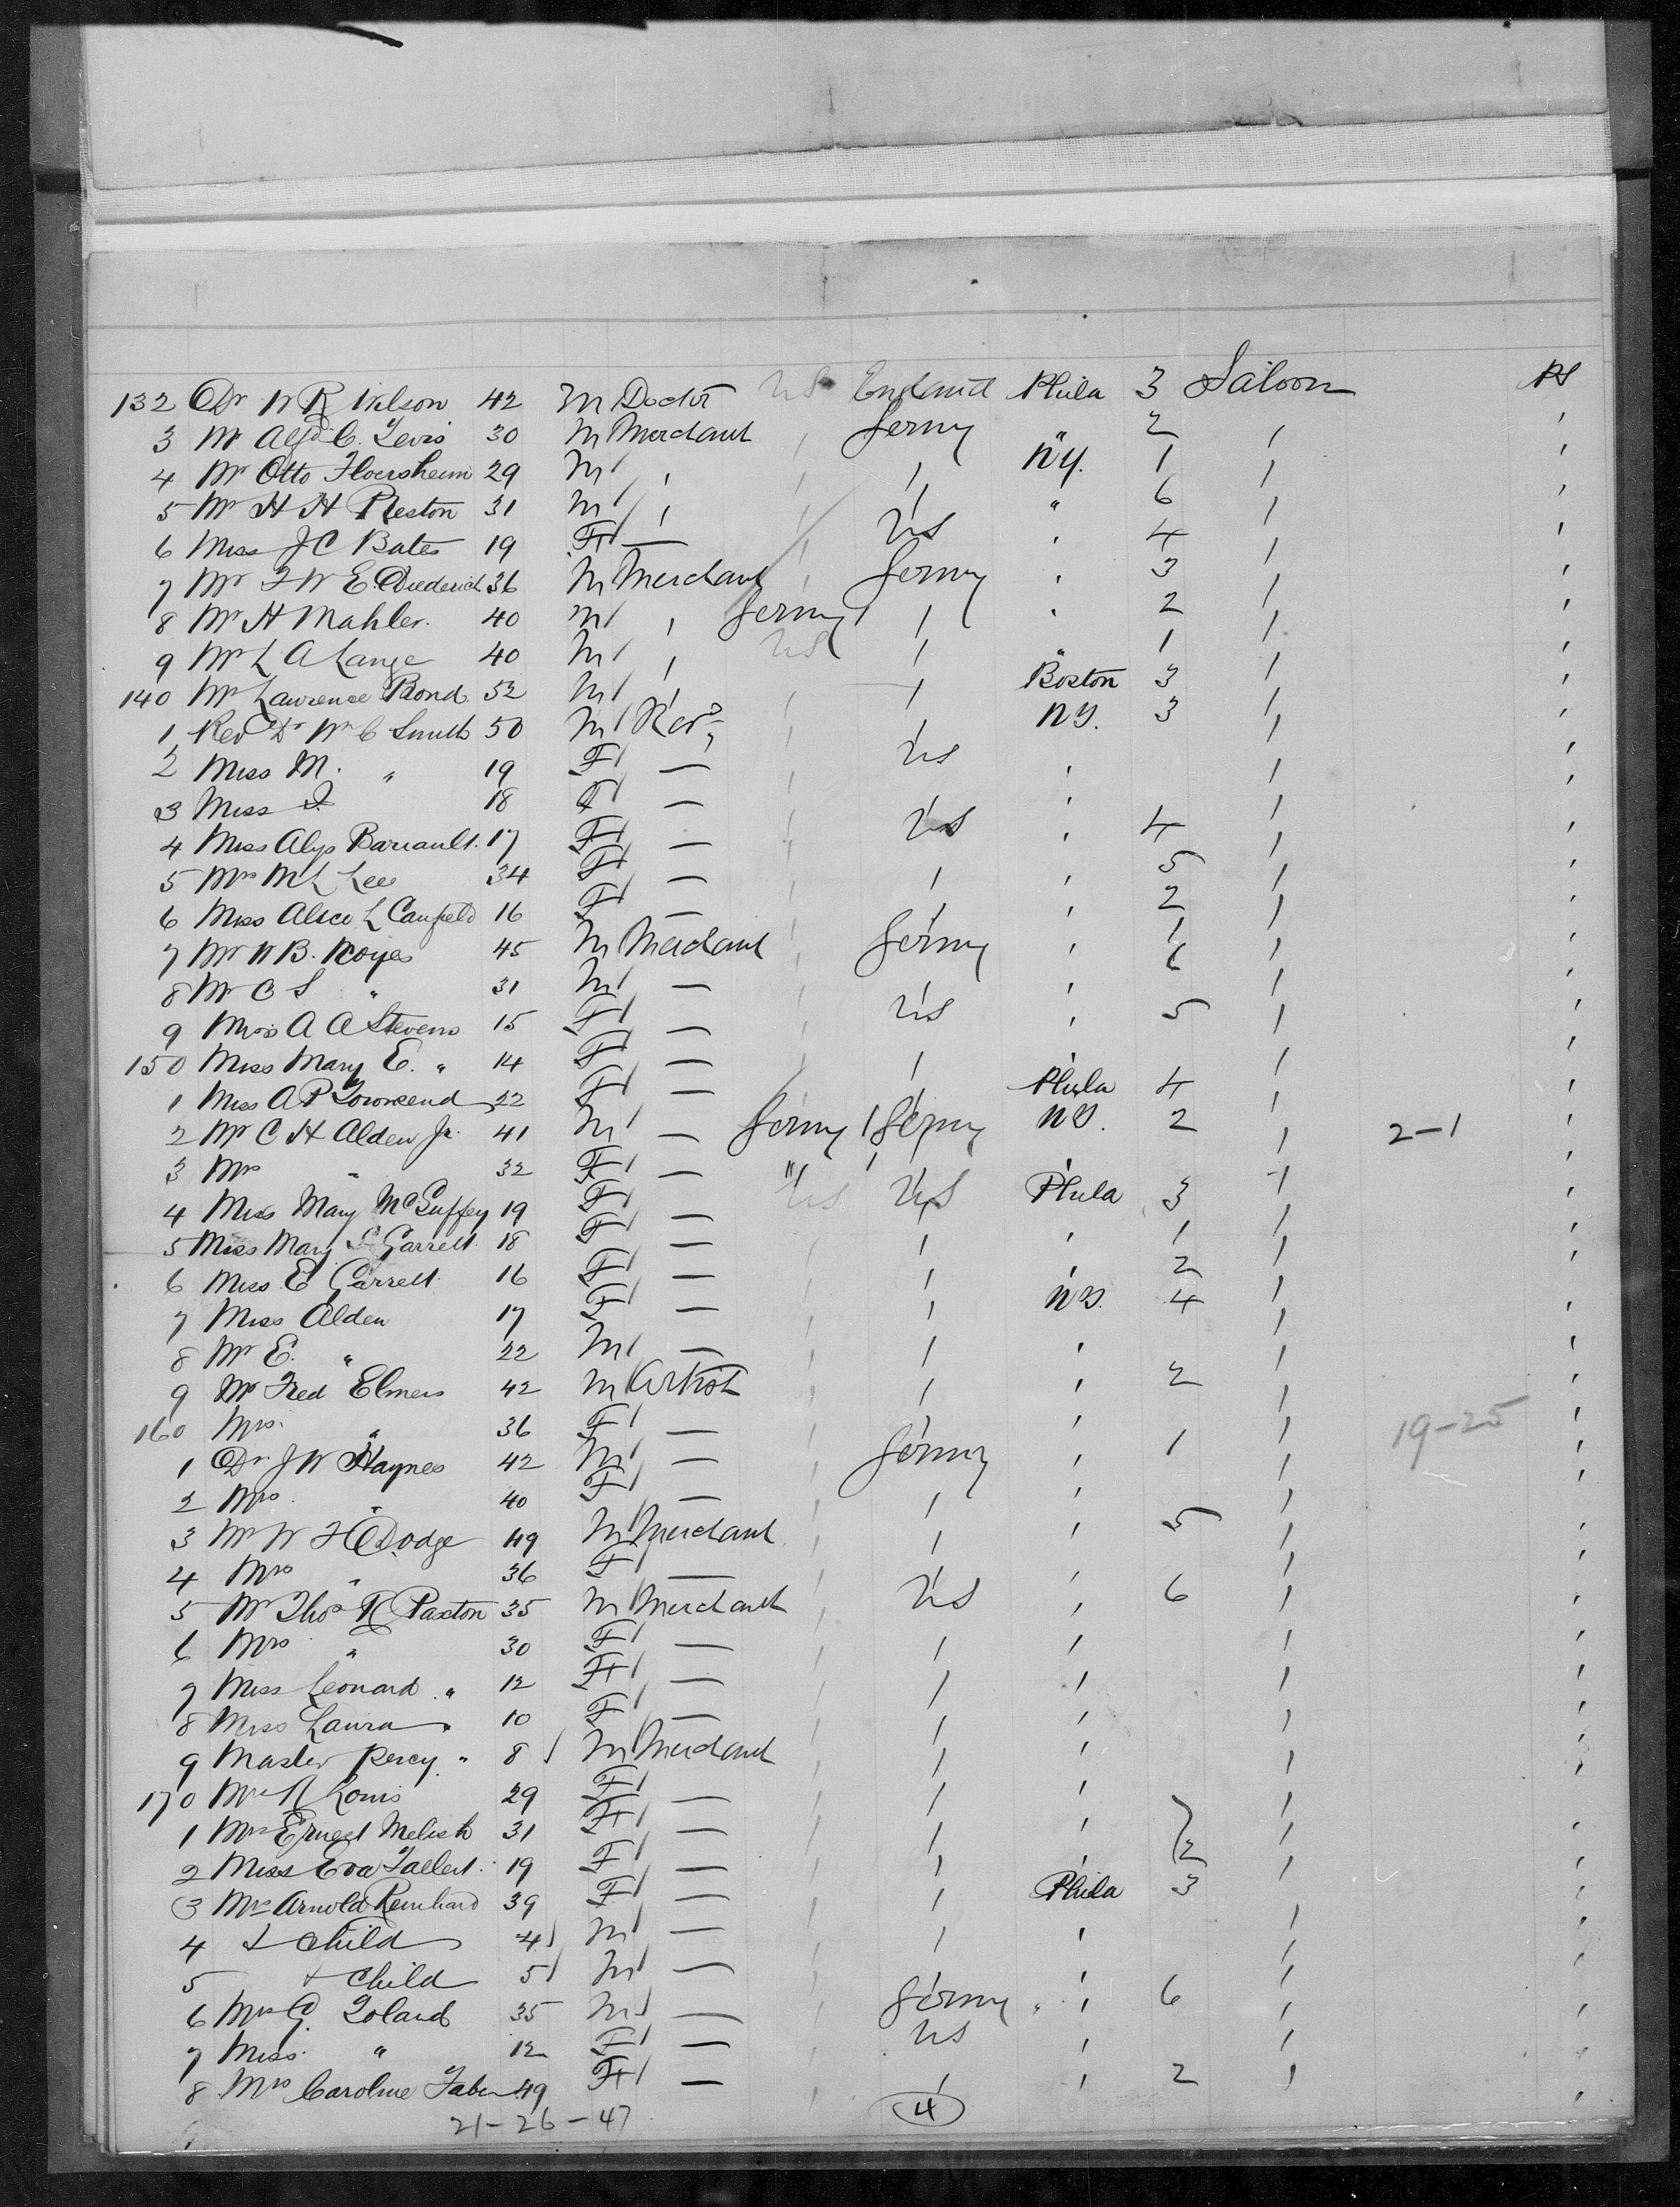 132 Dr W R Wilson 42 M Doctor US England Phila 3 Saloon
3 Mr Alfd C. Lewis 30 M Merchant ' Germy " 2 '
4 Mr Otto Floersheim 29 M ' ' ' NY. 1 '
5 Mr H H Preston 31 M ' ' ' " 6 '
6 Miss J C Bates 19 F — ' US ' 4 '
7 Mr F W E. Diederich 36 M Merchant ' Germy ' 3 '
8 Mr H Mahler. 40 M ' Germy ' ' 2 '
9 Mr L A Lange 40 M ' US ' " 1 '
140 Mr Lawrence Bond 52 M ' ' ' Boston 3 '
1 Rev Dr Wm C Smith 50 M Revd ' ' NY. 3 '
2 Miss M. " 19 F — ' US ' '
3 Miss 18 F — ' ' '
4 Miss Alys Barrault. 17 F — ' US ' 4 '
5 Mrs M L Lee 34 F — ' ' ' 5 '
6 Miss Alice L Canfield 16 F — ' ' ' 2 '
7 Mr W B. Noyes 45 M Merchant ' Germy ' 1 '
8 Mr C S " 31 M — ' ' 6 '
9 Miss A A Stevens 15 F — ' US ' 5 '
150 Miss Mary E. " 14 F — ' ' ' '
1 Miss A P Townsend 22 F — ' ' Phila 4 '
2 Mr C H Alden Jr. 41 M — Germy Germy NY. 2 ' 2-1
3 Mrs " 32 F — " ' ' '
4 Miss Mary McGuffey 19 F — US US Phila 3 '
5 Miss Mary S Garrett 18 F — ' ' ' 1 '
6 Miss E Garrett 16 F — ' ' ' 2 '
7 Miss Alden 17 F — ' ' NY. 4 '
8 Mr E. " 22 M — ' ' ' '
9 Mr Fred Elmers 42 M Artist ' ' ' 2 '
160 Mrs. " 36 F — ' ' ' ' 19-25
1 Dr J W Haynes 42 M — ' Germy ' 1 '
2 Mrs " 40 F — ' ' ' '
3 Mr W F Dodge 49 M Merchant ' ' ' 5 '
4 Mrs " 36 F — ' '
5 Mr Thos R Paxton 35 M Merchant ' US ' 6 '
6 Mrs " 30 F — ' ' ' '
7 Miss Leonard " 12 F — ' ' ' '
8 Miss Laura " 10 F — ' ' ' '
9 Master Percy " 8 M Merchant ' ' ' '
170 R Louis 29 F — ' ' ' '
1 Mrs Ernest Melish 31 F — ' ' ' '
2 Miss Eva 19 F — ' ' ' 2 '
3 Mrs Arnold Reinhard 39 F — ' ' Phila 3
4 + Child 4 M — ' ' ' '
5 + Child 5 M — ' ' '
6 G. Toland 35 M — ' Germy " ' 6 '
7 Miss " 12 F — ' US ' '
8 Mrs Caroline Faber 49 F — ' ' ' 2 '
21-26-47 4